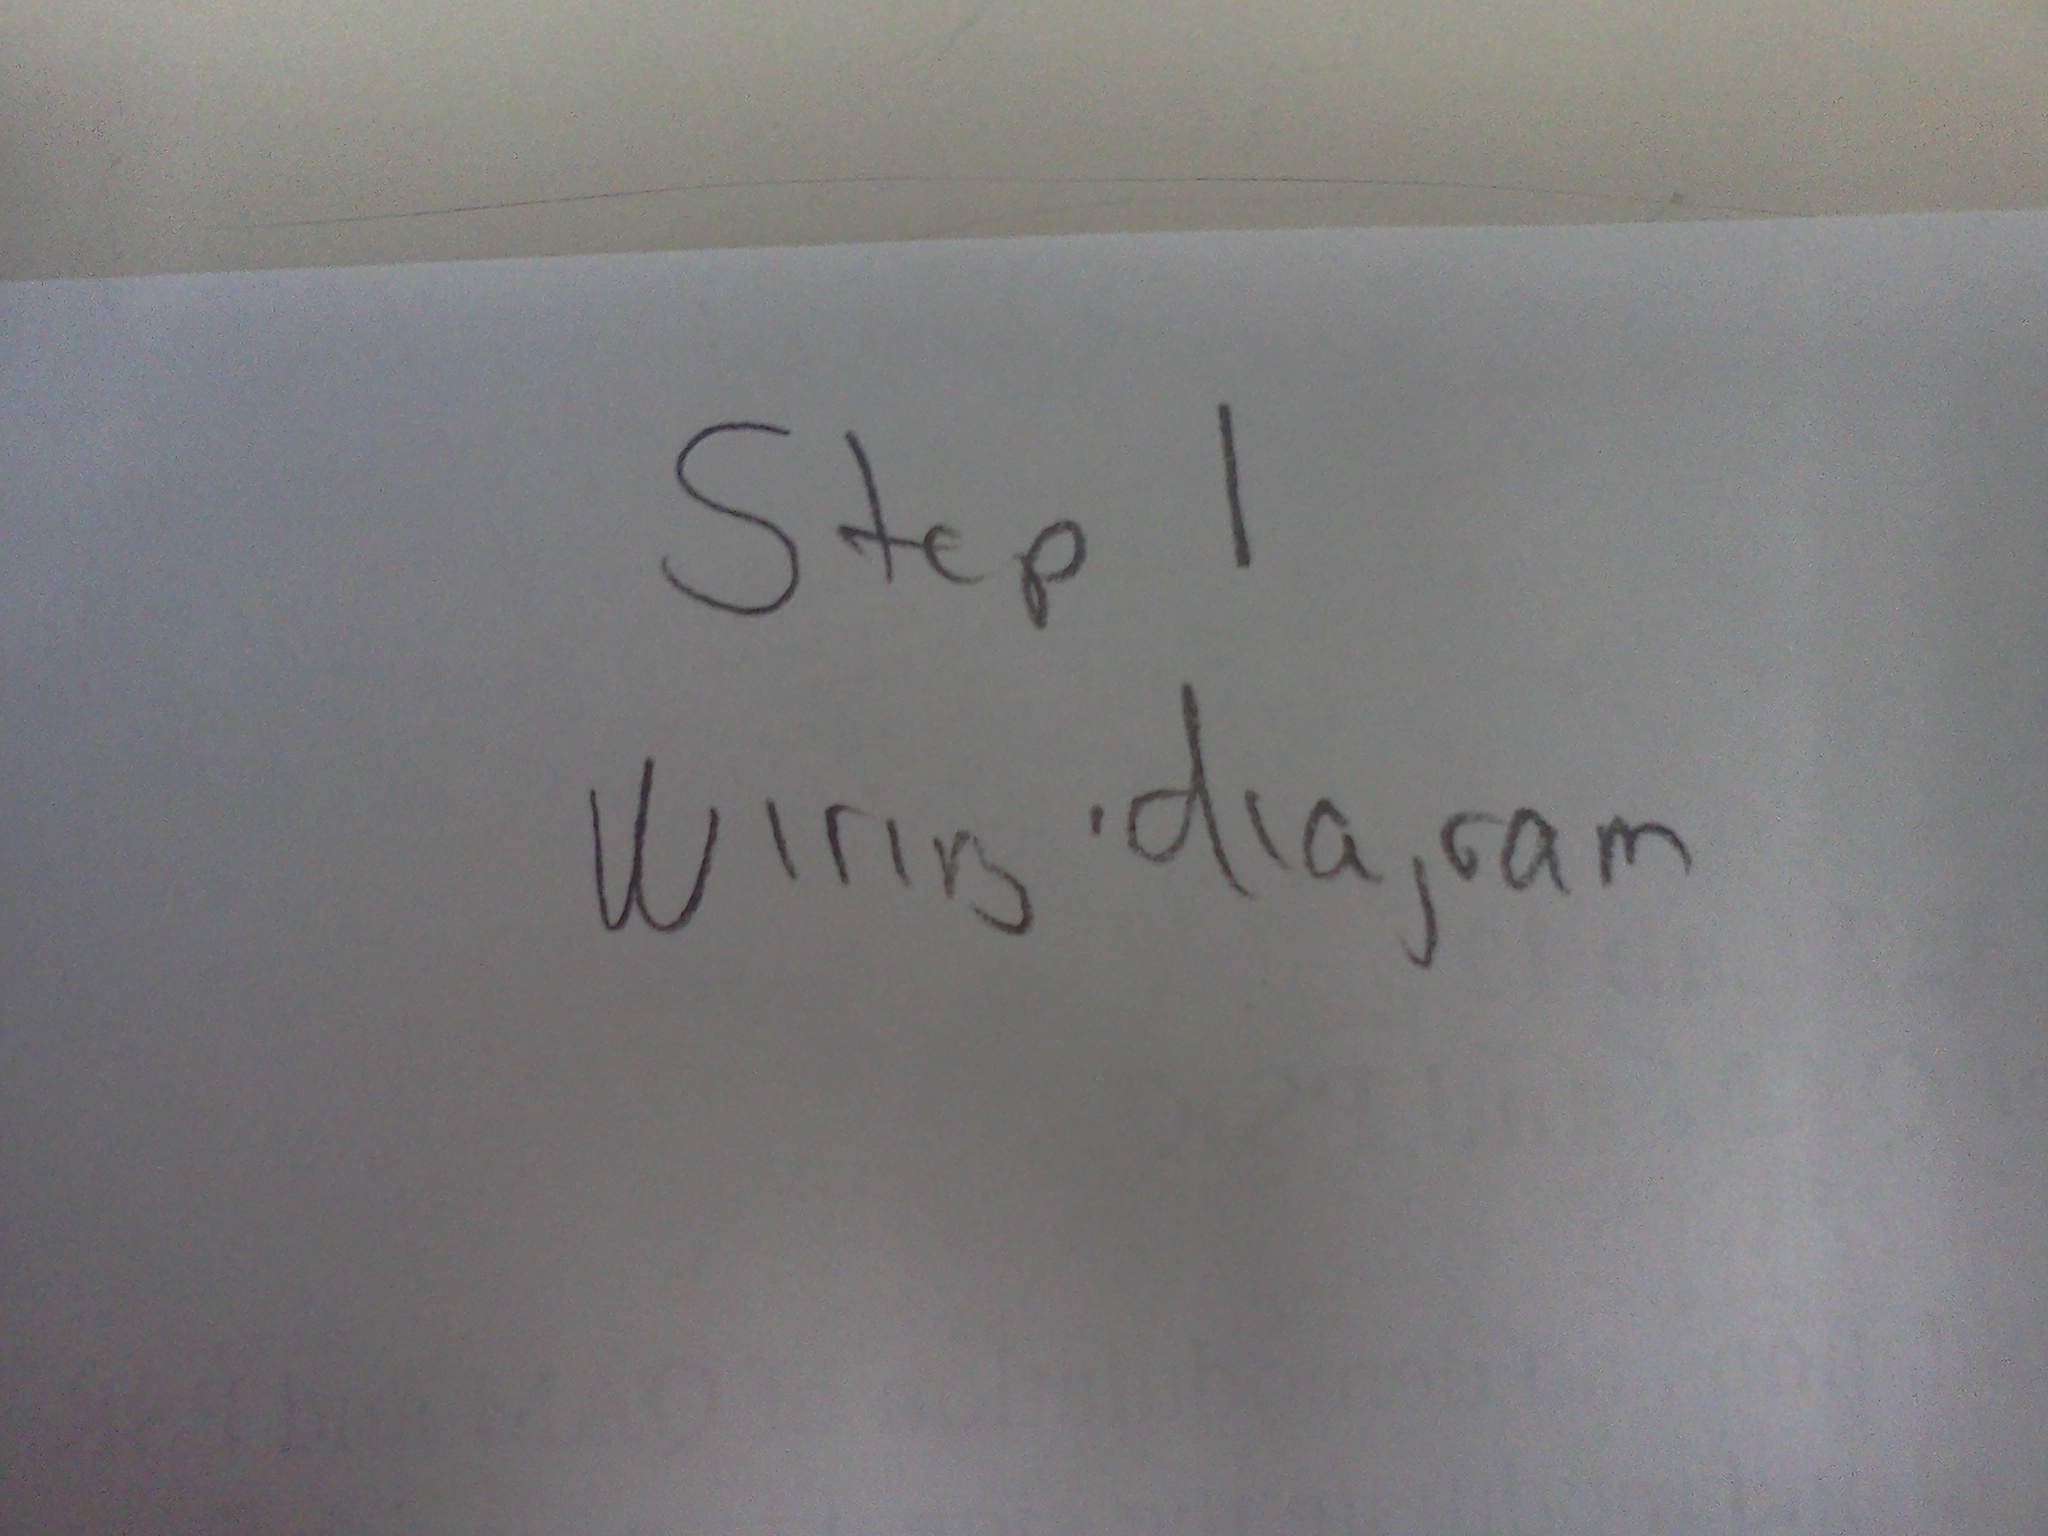 Step 1
Wiring diagram